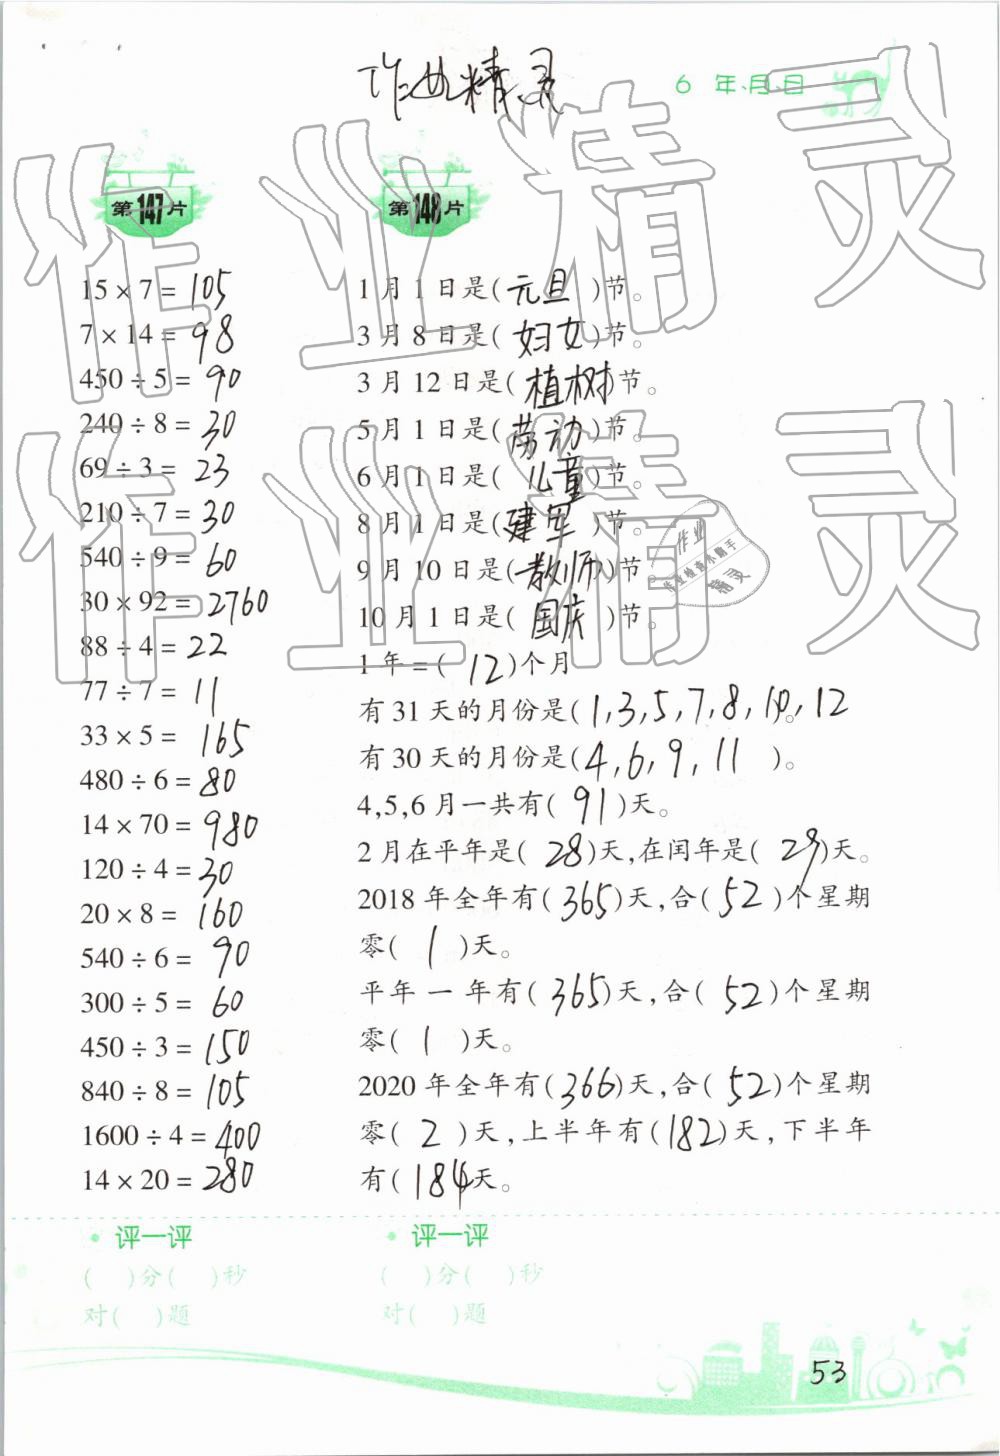 作业精灵
6 年、月、日
第147片
15×7=105
7×14=98
450÷5=90
240÷8=30
69÷3=23
210÷7=30
540÷9=60
30×92=2760
88÷4=22
77÷7=11
33×5=165
480÷6=80
14×70=980
120÷4=30
20×8=160
540÷6=90
300÷5=60
450÷3=150
840÷8=105
1600÷4=400
14×20=280
评一评
( )分( )秒
对( )题
第148片
1月1日是(元旦)节。
3月8日是(妇女)节。
3月12日是(植树)节。
5月1日是(劳动)节。
6月1日是(儿童)节。
8月1日是(建军)节。
9月10日是(教师)节。
10月1日是(国庆)节。
1年=(12)个月
有31天的月份是(1,3,5,7,8,10,12
有30天的月份是(4,6,9,11)。
4,5,6月一共有(91)天。
2月在平年是(28)天,在闰年是(29)天。
2018年全年有(365)天,合(52)个星期
零(1)天。
平年一年有(365)天,合(52)个星期
零(1)天。
2020年全年有(366)天,合(52)个星期
零(2)天,上半年有(182)天,下半年
有(184天。
评一评
( )分( )秒
对( )题
53
作业精灵
作业精灵
作业
精灵